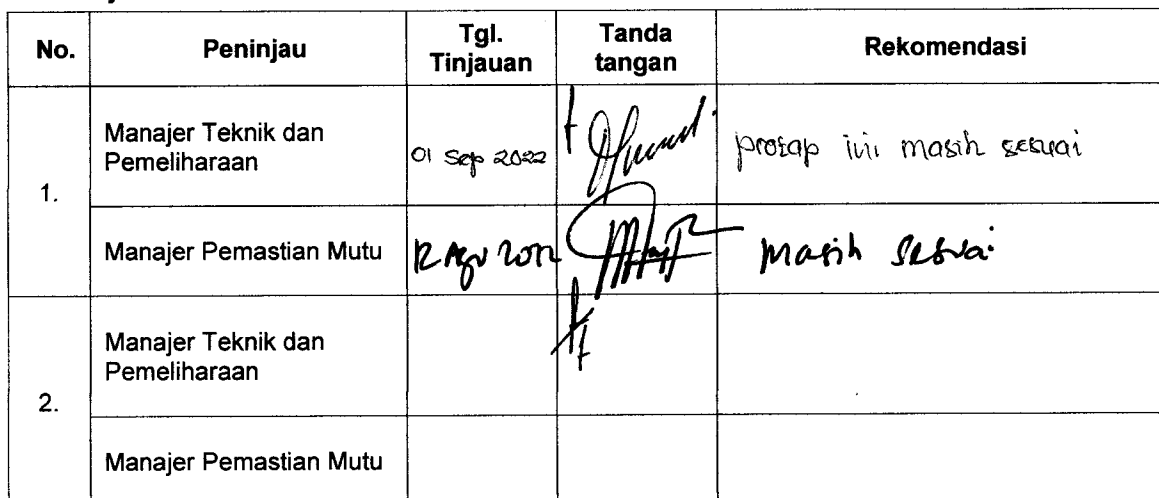 No. Peninjau Tgl. Tinjauan Tanda tangan Rekomendasi
1.
Manajer Teknik dan Pemeliharaan 01 Sep 2022 protap ini masih sesuai
Manajer Pemastian Mutu 12 Agu 2022 masih sesuai
2.
Manajer Teknik dan Pemeliharaan
Manajer Pemastian Mutu